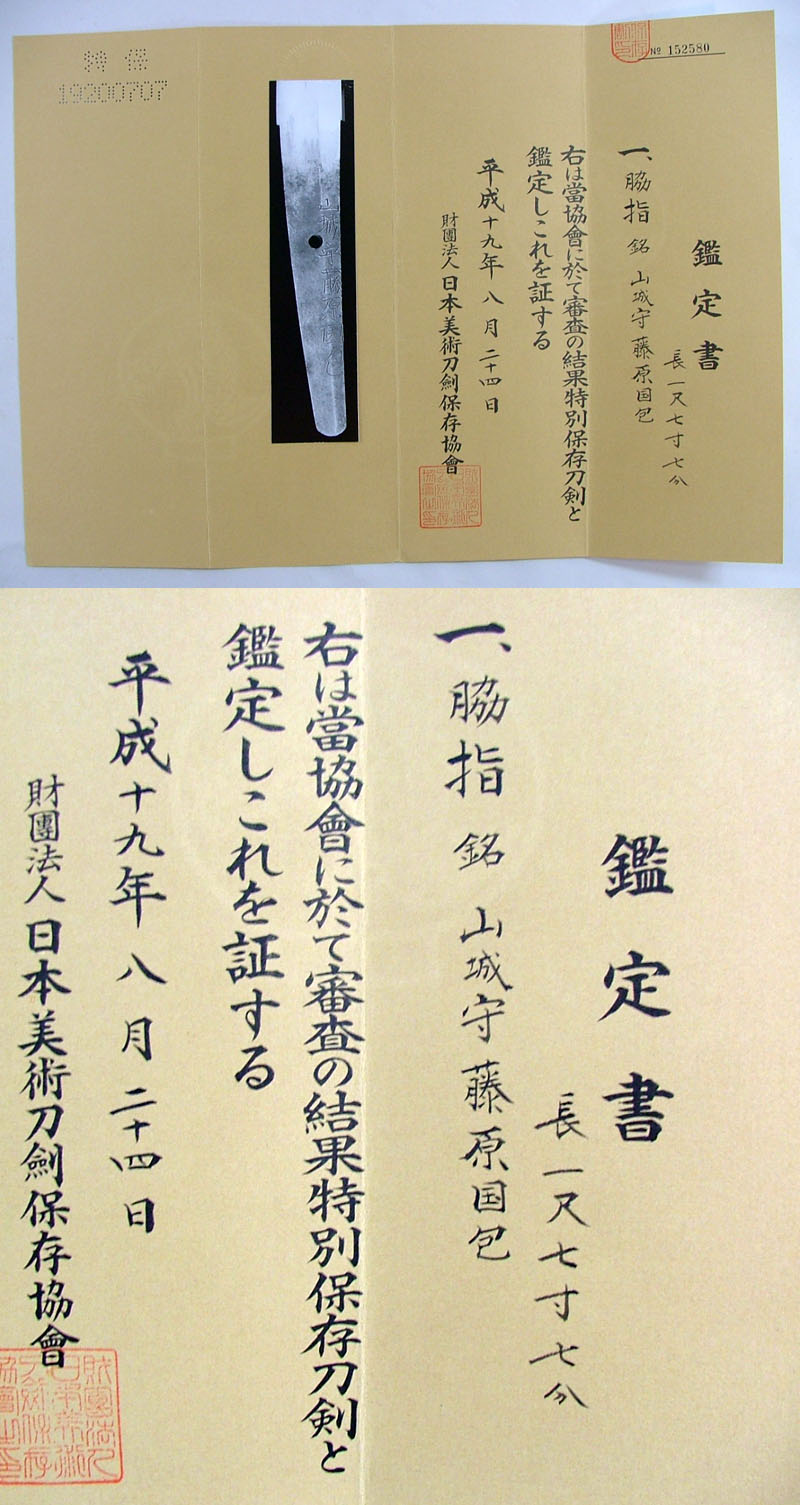 特保
19200707
山城守藤原国包
№ 152580
鑑定書
一、脇指 銘 山城守藤原国包
長一尺七寸七分
右は當協會に於て審査の結果特別保存刀剣と
鑑定しこれを証する
平成十九年八月二十四日
財團法人日本美術刀劍保存協會
鑑定書
一、脇指 銘 山城守藤原国包
長一尺七寸七分
右は當協會に於て審査の結果特別保存刀剣と
鑑定しこれを証する
平成十九年八月二十四日
財團法人日本美術刀劍保存協會